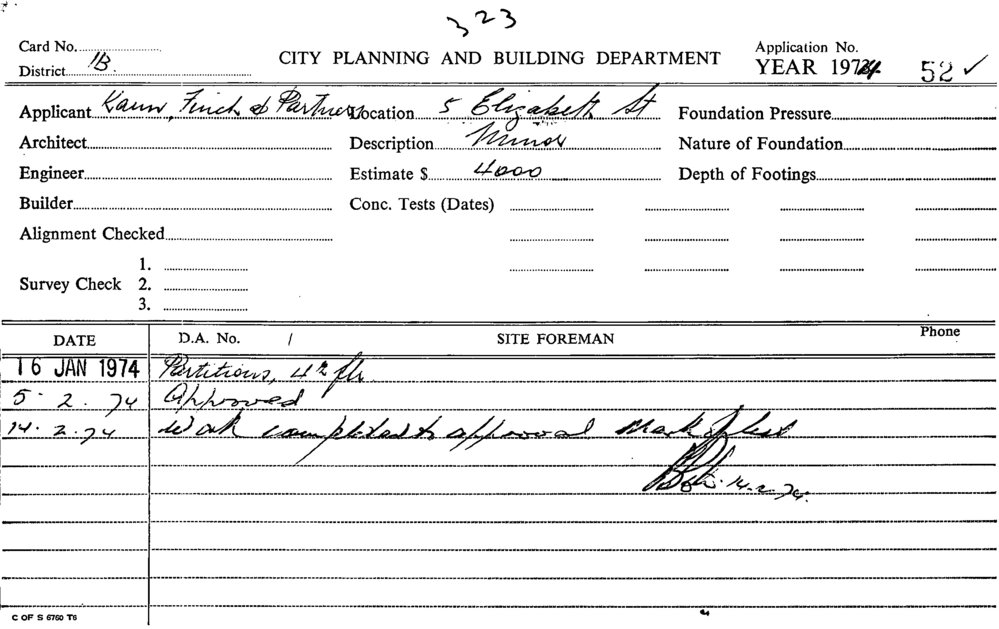 323
Card No.
District 1B.
CITY PLANNING AND BUILDING DEPARTMENT
Application No.
YEAR 1974 52 ✓
Applicant Kann, Finch & Partners Location 5 Elizabeth St Foundation Pressure
Architect Description Minor Nature of Foundation
Engineer Estimate $ 4000 Depth of Footings
Builder Conc. Tests (Dates)
Alignment Checked
1.
Survey Check 2.
3.
DATE D.A. No. / SITE FOREMAN Phone
16 JAN 1974 Partitions, 4th flr.
5. 2. 74 Approved
14. 2. 74 Work completed to approval Mark off list
14.2.74.
C OF S 6760 T6